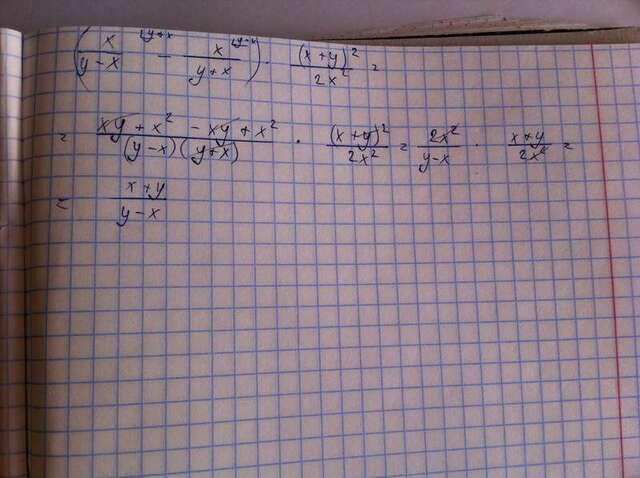 (x/(y-x)^(y+x) - x/(y+x)^(y-x)) · (x+y)²/2x² =
= (xy + x² - xy + x²)/((y-x)(y+x)) · (x+y)²/2x² = 2x²/(y-x) · (x+y)/2x² =
= (x+y)/(y-x)